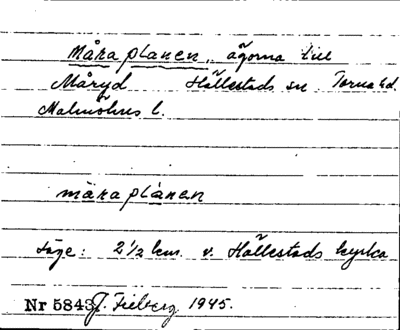 Måraplanen, ägorna till
Måryd Hällestads sn. Torna hd.
Malmöhus l.
måraplánen
Läge: 2 1/2 km. v. Hällestads kyrka
Nr 5843 J. Fieberg 1945.